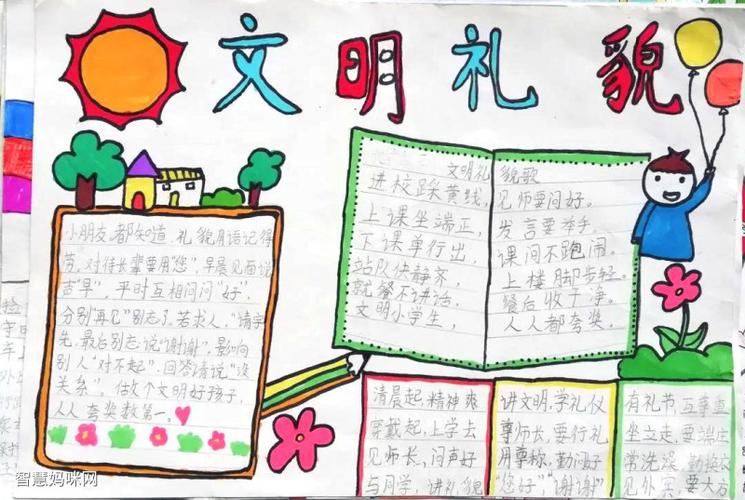 文明礼貌
小朋友,都知道,礼貌用语记得
劳,对待长辈要用"您",早晨见面说
声"早",平时互相问问"好",
分别"再见"别忘了,若求人,"请"字
先,最后别忘说"谢谢",影响
别人"对不起",回答请说"没
关系",做个文明好孩子,
人人夸奖数第一。
文明礼貌歌
进校踩黄线,见师要问好。
上课坐端正,发言要举手。
下课单行出,课间不跑闹。
站队快静齐,上楼脚步轻。
就餐不讲话,餐后收干净。
文明小学生,人人都夸奖。
清晨起,精神爽
穿戴起,上学去
见师长,问声好
与同学,讲礼貌
讲文明,学礼仪
尊师长,要行礼
用尊称,勤问好
"您好""谢谢"
有礼节,互尊重
坐立走,要端庄
常洗澡,勤换衣
见外宾,要大方
智慧妈咪网